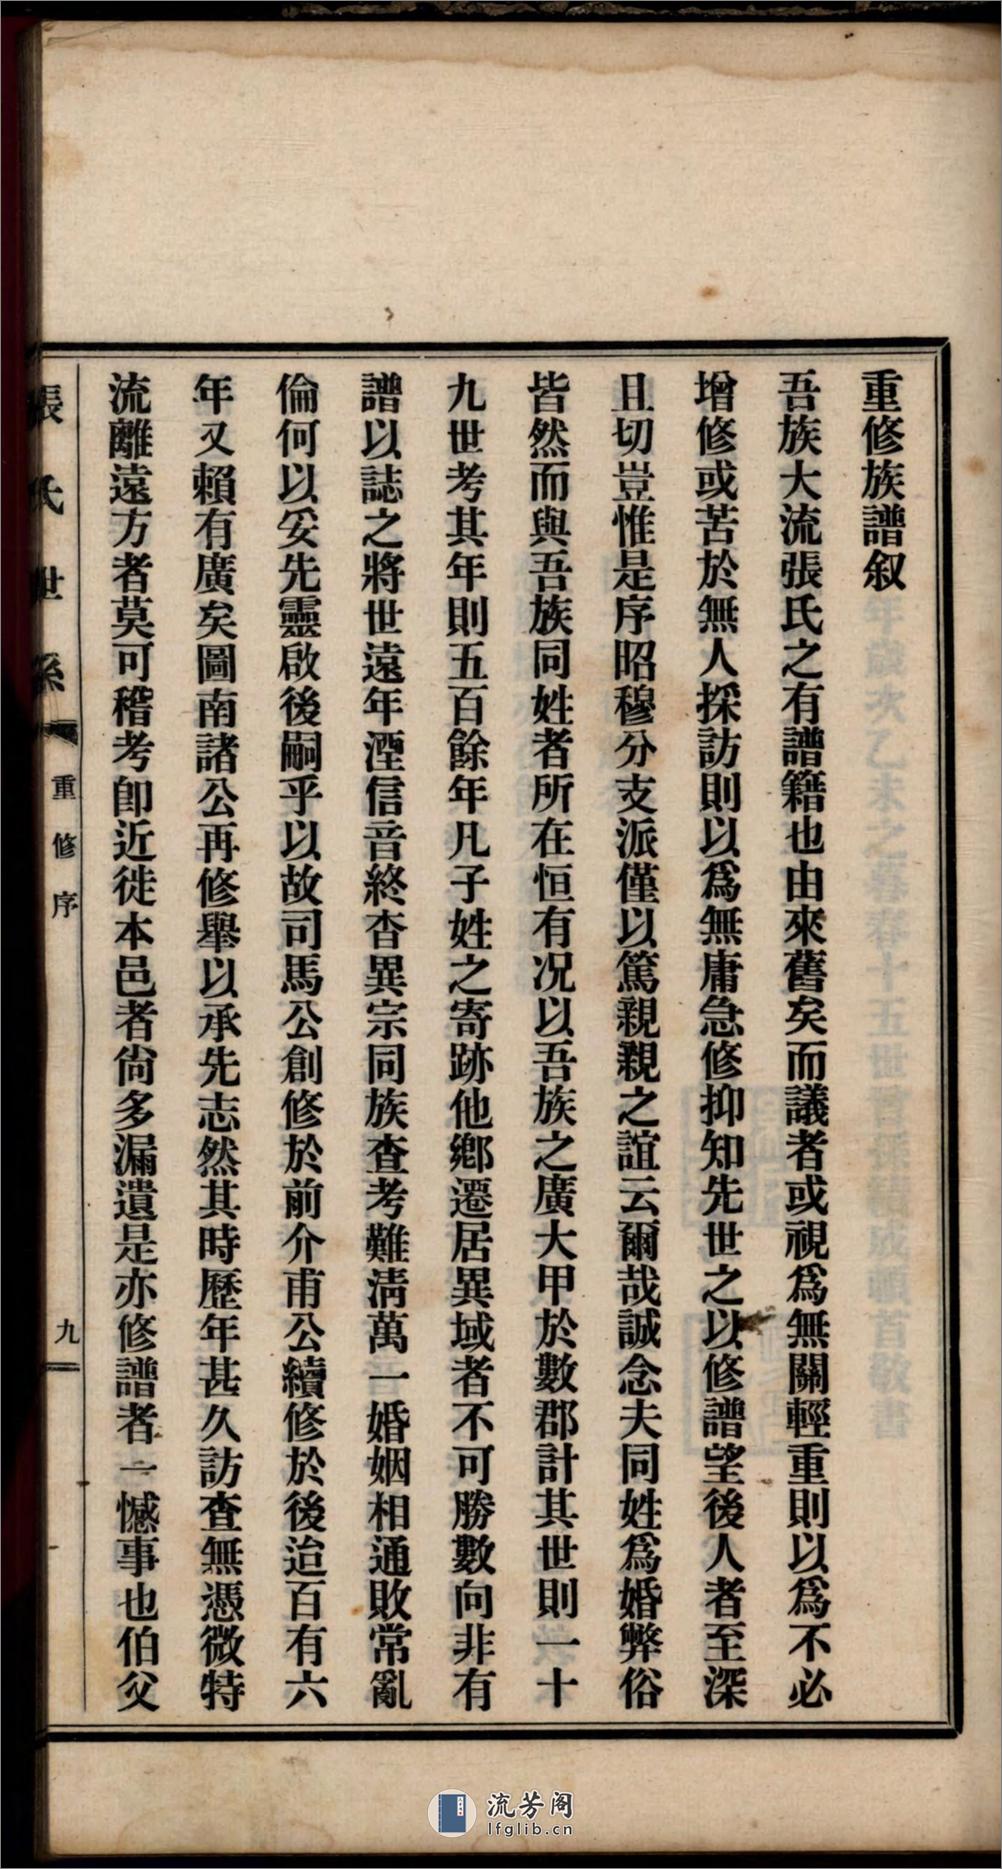 重修族譜叙
吾族大流張氏之有譜籍也由來舊矣而議者或視爲無關輕重則以爲不必
增修或苦於無人採訪則以爲無庸急修抑知先世之以修譜望後人者至深
且切豈惟是序昭穆分支派僅以篤親親之誼云爾哉誠念夫同姓爲婚弊俗
皆然而與吾族同姓者所在恒有况以吾族之廣大甲於數郡計其世則一十
九世考其年則五百餘年凡子姓之寄跡他鄉遷居異域者不可勝數向非有
譜以誌之將世遠年湮信音終杳異宗同族查考難淸萬一婚姻相通敗常亂
倫何以妥先靈啟後嗣乎以故司馬公創修於前介甫公續修於後迨百有六
年又賴有廣矣圖南諸公再修舉以承先志然其時歷年甚久訪查無憑微特
流離遠方者莫可稽考卽近徙本邑者尙多漏遺是亦修譜者一憾事也伯父
張氏世系
重修序
九
流芳阁
lfglib.cn